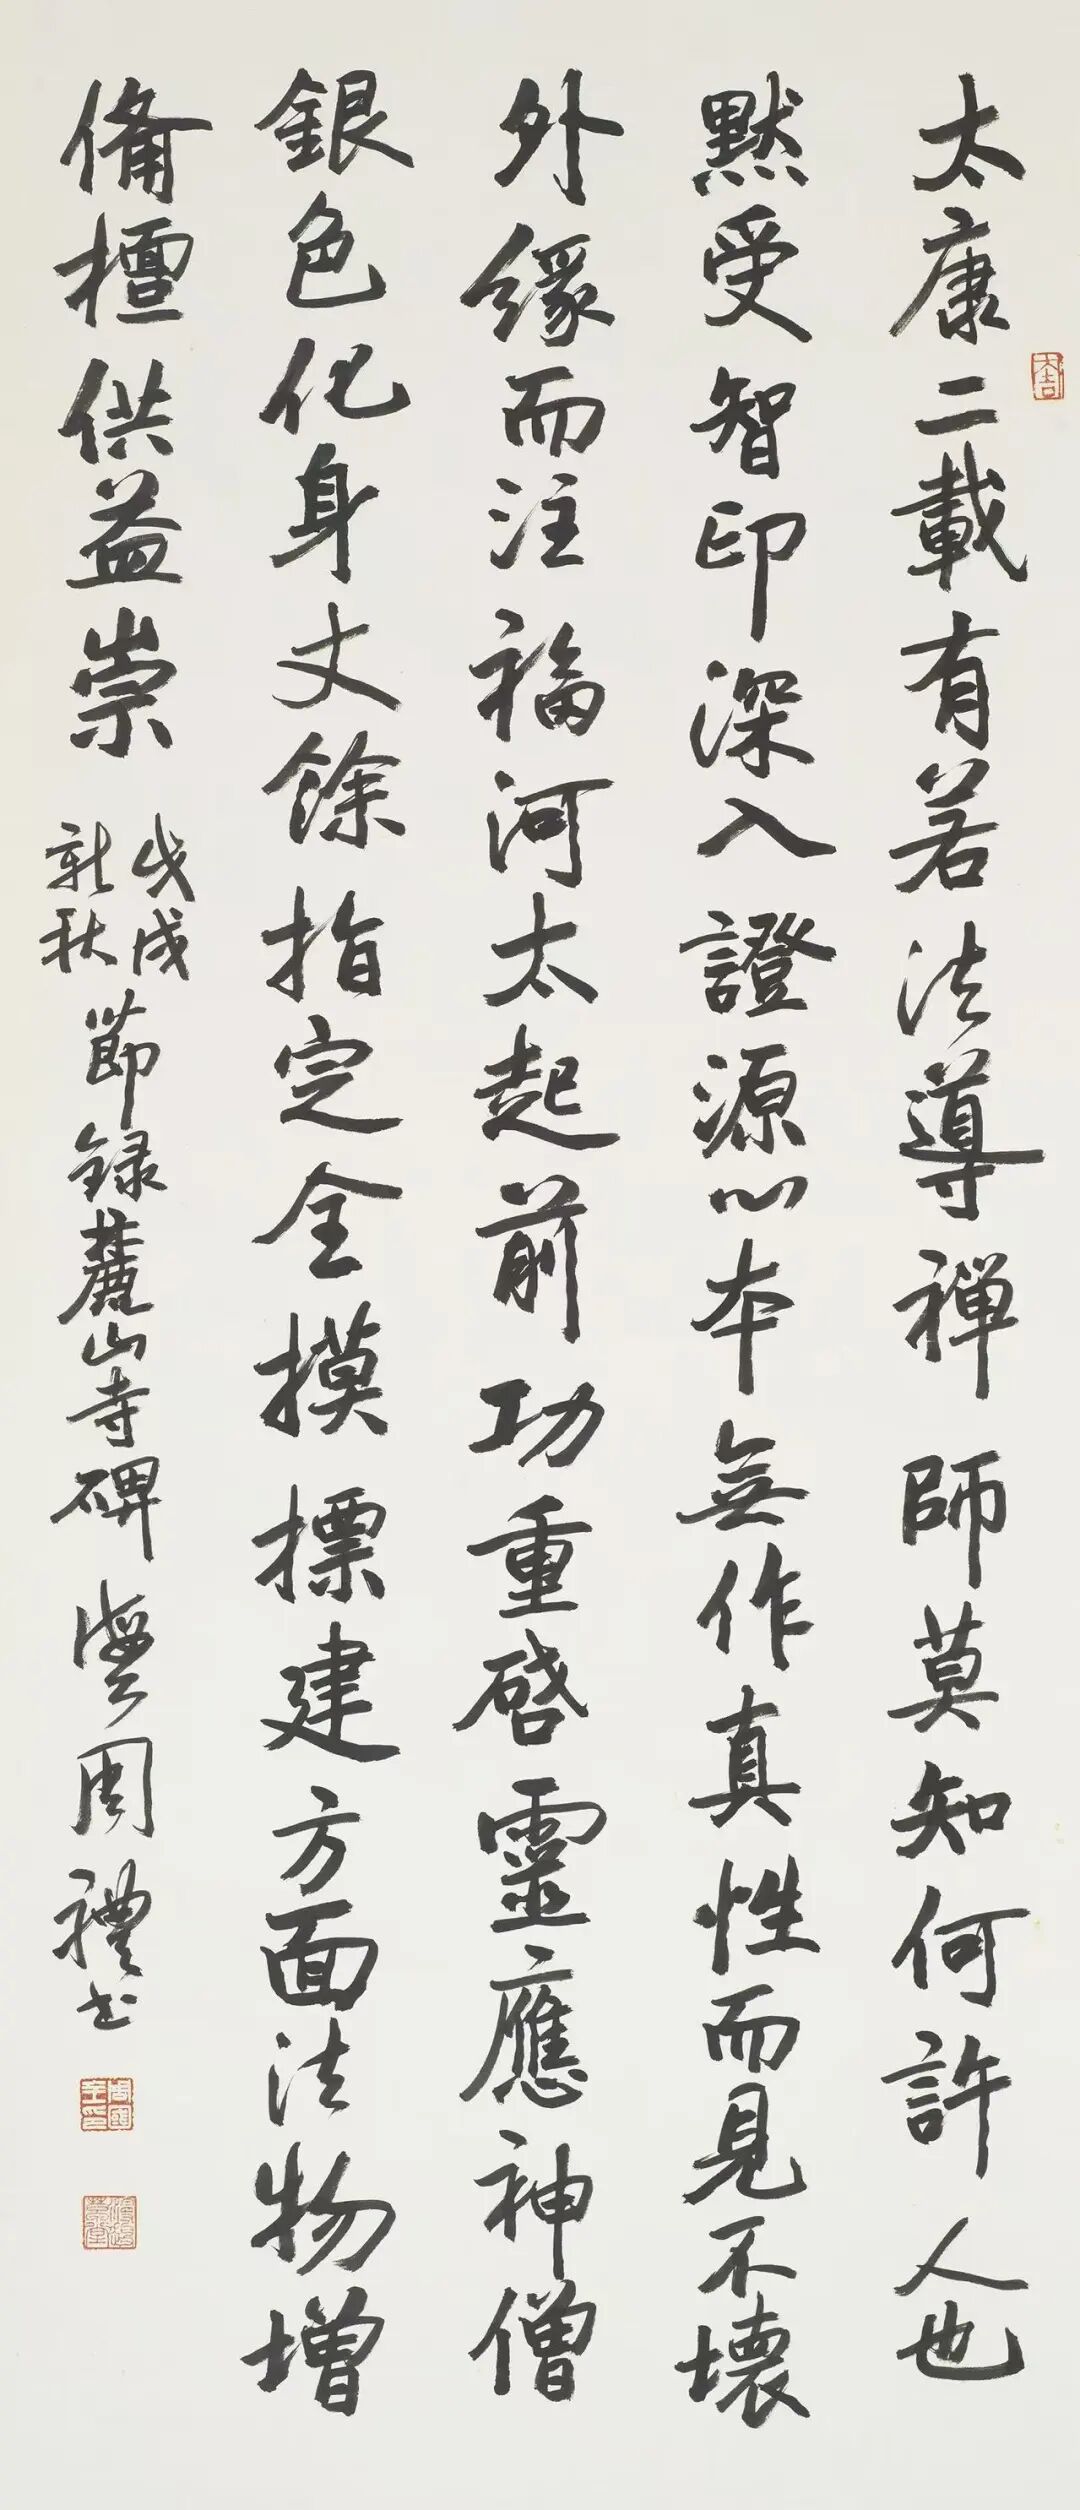 太康二載有若法導禪師莫知何許人也
黙受智印深入證源心本無作真性而見不壞
外緣而注福河太起前功重啓靈應神僧
銀色化身丈餘指定全摸摽建方面法物增
脩擅供益崇
戊戌
新秋
節録麓山寺碑 周禮書
大吉